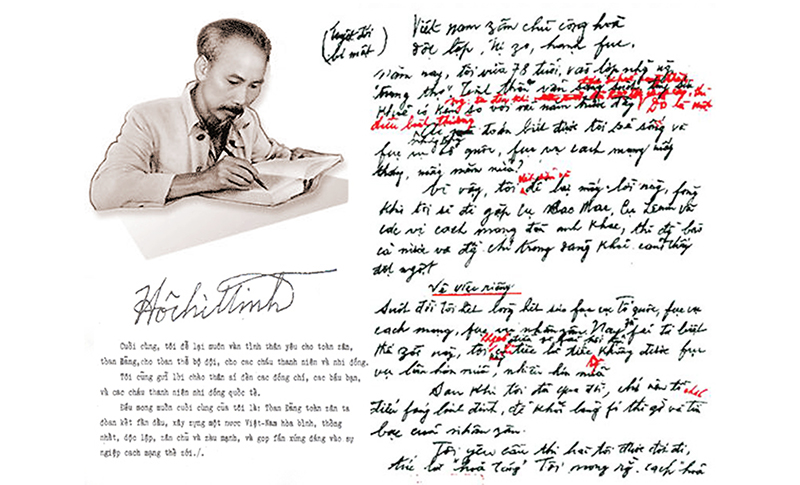 Hồ Chí Minh
Cuối cùng, tôi để lại muôn vàn tình thân yêu cho toàn zân,
toàn Đảng, cho toàn thể bộ đội, cho các cháu thanh niên và nhi đồng.
Tôi cũng gửi lời chào thân ái đến các đồng chí, các bầu bạn,
và các cháu thanh niên nhi đồng quốc tế.
Điều mong muốn cuối cùng của tôi là: Toàn Đảng toàn zân ta
đoàn kết fấn đấu, xây zựng một nước Việt-Nam hòa bình, thống
nhất, độc lập, zân chủ và zàu mạnh, và góp fần xứng đáng vào sự
ngiệp cách mạng thế zới./.
(Tuyệt đối
bí mật)
Việt nam zân chủ cộng hoà
độc lập, tự zo, hạnh fúc.
Năm nay, tôi vừa 78 tuổi, vào lớp những ng
"trung thọ" Tinh thần vẫn
Khoẻ có kém so với vài năm trước đây Đó là một
điều bình thường
toán biết được tôi sẽ sống và
fục vụ Tổ quốc, fục vụ cách mạng mấy
tháng, mấy năm nữa?
Vì vậy, tôi để lại mấy lời này, fòng
Khi tôi sẽ đi gặp cụ Các Mác, cụ Lênin và
các vị cách mạng đàn anh khác, thì đồng bào
cả nước và đồng chí trong đảng khỏi cảm thấy
đột ngột
Về việc riêng
Suốt đời tôi hết lòng hết sức fục vụ Tổ quốc, fục vụ
cách mạng, fục vụ nhân zân. Nay zù fải từ biệt
thế zới này, tôi tiếc là tiếc không được fục
vụ lâu hơn nữa, nhiều hơn nữa
Sau khi tôi đã qua đời, chớ nên tổ chức
điếu fúng linh đình, để khỏi lãng fí thì giờ và tiền
bạc của nhân zân.
Tôi yêu cầu thi hài tôi được đốt đi,
tức là "hoả táng" Tôi mong rằng cách hoả